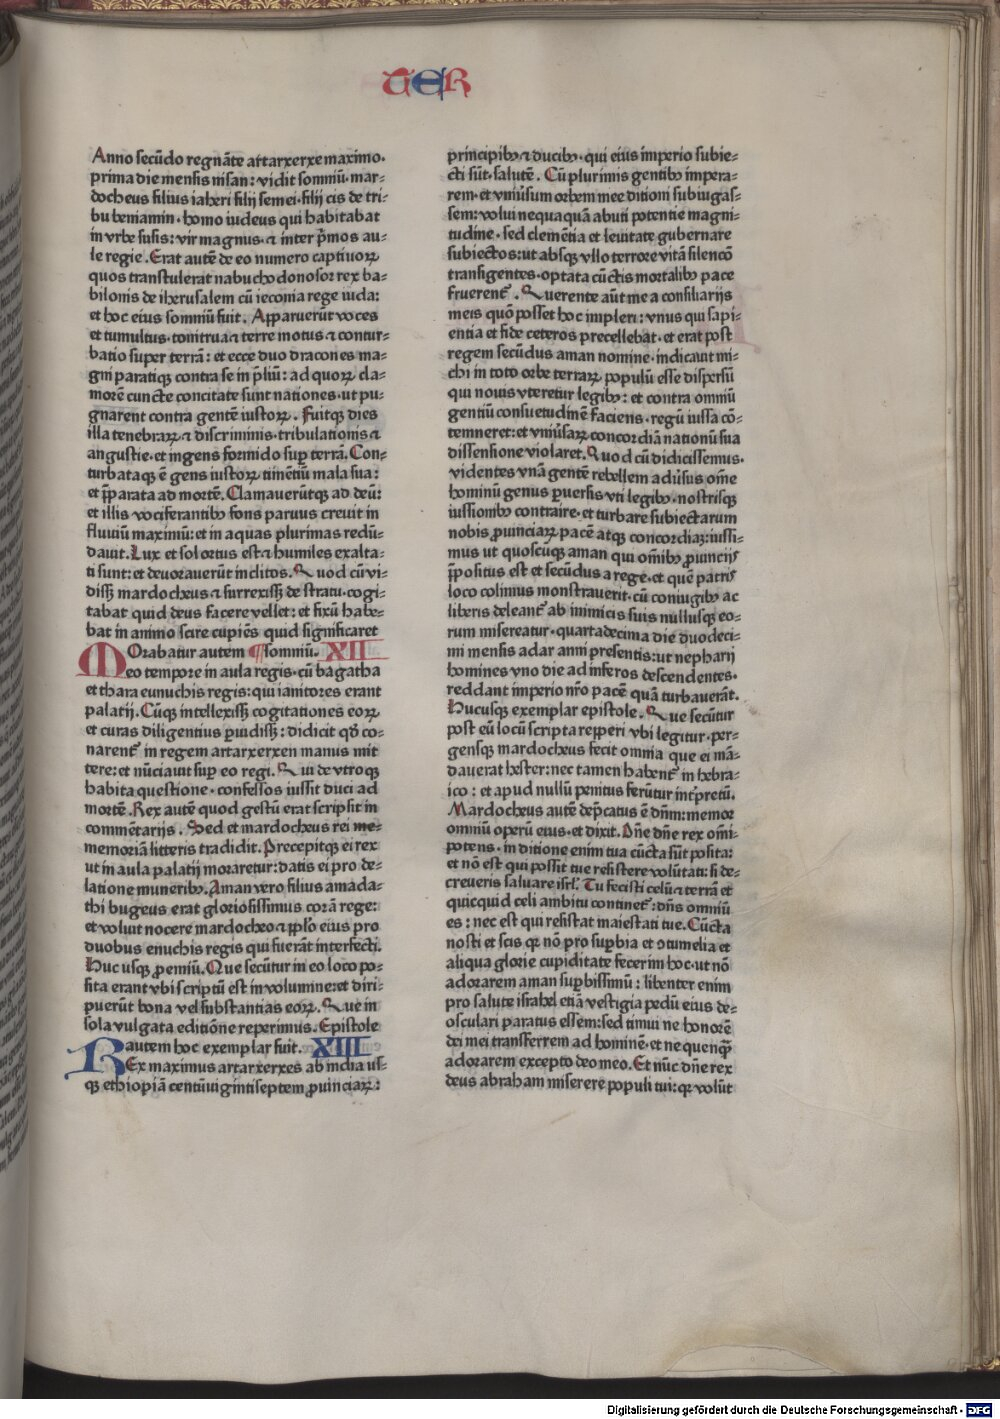 TER
Anno secūdo regnāte artarxerxe maximo·
prima die mensis nisan: vidit somniū·mar⸗
docheus filius iaheri filij semei·filij cis de tri⸗
bu beniamin·homo iudeus qui habitabat
in vrbe susis: vir magnus·⁊ inter p̄mos au⸗
le regie. Erat autē de eo numero captiuoꝝ
quos transtulerat nabuchodonosor rex ba⸗
bilonis de iherusalem cū ieconia rege iuda:
et hoc eius somniū fuit. Apparuerūt voces
et tumultus·tonitrua⁊ terre motus ⁊ contur⸗
batio super terrā: et ecce duo dracones ma⸗
gni paratiqꝫ contra se in p̄liū: ad quoꝝ cla⸗
morē cuncte concitate sunt nationes·ut pu⸗
gnarent contra gentē iustoꝝ. Fuitqꝫ dies
illa tenebraꝝ ⁊ discriminis·tribulationis ⁊
angustie·et ingens formido suꝑ terrā. Con⸗
turbataqꝫ ē gens iustoꝝ timētiū mala sua:
et p̄parata ad mortē. Clamauerūtqꝫ ad deū:
et illis vociferantibꝰ fons paruus creuit in
fluuiū maximū: et in aquas plurimas redū⸗
dauit. Lux et sol ortus est⁊ humiles exalta⸗
ti sunt: et deuorauerūt inclitos. Quod cū vi⸗
dissꝫ mardocheus ⁊ surrexissꝫ de stratu·cogi⸗
tabat quid deus facere vellet: et fixū habe⸗
bat in animo scire cupiēs quid significaret
MOrabatur autem ¶somniū. XII
eo tempore in aula regis·cū bagatha
et thara eunuchis regis: qui ianitores erant
palatij. Cūqꝫ intellexissꝫ cogitationes eoꝝ
et curas diligentius ꝑuidissꝫ: didicit qd̕ co⸗
narent᷑ in regem artarxerxen manus mit
tere: et nūciauit suꝑ eo regi. Qui de vtroqꝫ
habita questione·confessos iussit duci ad
mortē. Rex autē quod gestū erat scripsit in
commētarijs. Sed et mardocheus rei me⸗
memoriā litteris tradidit. Precepitqꝫ ei rex
ut in aula palatij moraretur: datis ei pro de⸗
latione muneribꝰ. Aman vero filius amada⸗
thi bugeus erat gloriosissimus corā rege:
et voluit nocere mardocheo ⁊ pp̄lo eius pro
duobus enuchis regis qui fuerāt interfecti.
Huc usqꝫ ꝓemiū. Que secūtur in eo loco po⸗
sita erant vbi scriptū est in volumine: et diri⸗
puerūt bona vel substantias eoꝝ. Que in
sola vulgata editiōne reperimus. Epistole
autem hoc exemplar fuit. XIII
REx maximus artarxerxes ab india us⸗
qꝫ ethiopiā centū viginti septem ꝓuinciaꝝ:
principibꝰ ⁊ ducibꝰ·qui eius imperio subie⸗
cti sūt·salutē. Cū plurimis gentibꝰ impera⸗
rem·et vniūsum orbem mee ditioni subiugas⸗
sem: volui nequaquā abuti potentie magni⸗
tudine·sed clemētia et lenitate gubernare
subiectos: ut absqꝫ vllo terrore vitā silencō
transigentes·optata cūctis mortalibꝰ pace
fruerent᷑. Querente aūt me a consiliarijs
meis quō posset hoc impleri: vnus qui sapi⸗
entia et fide ceteros precellebat·et erat post
regem secūdus aman nomine·indicauit mi⸗
chi in toto orbe terraꝝ populū esse dispersū
qui nouis vteretur legibꝰ: et contra omniū
gentiū consuetudinē faciens·regū iussa cō⸗
temneret: et vniūsaꝝ concordiā nationū sua
dissensione violaret. Quod cū didicissemus·
videntes vnā gentē rebellem adūsus om̄e
hominū genus ꝑuersis vti legibꝰ·nostrisqꝫ
iussionibꝰ contraire·et turbare subiectarum
nobis ꝓuinciaꝝ pacē atqꝫ concordiaꝫ: iussi⸗
mus ut quoscūqꝫ aman qui om̄ibꝰ ꝓuincijs
p̄positus est et secūdus a rege·et quē patris
loco colimus monstrauerit·cū coniugibꝰ ac
liberis deleant᷑ ab inimicis suis nullusqꝫ eo⸗
rum misereatur·quartadecima die duodeci⸗
mi mensis adar anni presentis: ut nepharij
homines vno die ad inferos descendentes·
reddant imperio nr̄o pacē quā turbauerāt.
Hucusqꝫ exemplar epistole. Que secūtur
post eū locū scripta repperi vbi legitur·per⸗
gensqꝫ mardocheus fecit omnia que ei mā⸗
dauerat hester: nec tamen habent᷑ in hebra⸗
ico: et apud nullū penitus ferūtur int̕pretū.
Mardocheus autē dep̄catus ē dn̄m: memor
omniū operū eius·et dixit. Dn̄e dn̄e rex om̄i⸗
potens·in ditione enim tua cūcta sūt posita:
et nō est qui possit tue resistere volūtati: si de⸗
creueris saluare isrl̕. Tu fecisti celū ⁊ terrā et
quicquid celi ambitu continet᷑: dn̄s omniū
es: nec est qui resistat maiestati tue. Cūcta
nosti et scis qꝛ nō pro suꝑbia et ꝯtumelia et
aliqua glorie cupiditate fecerim hoc·ut nō
adorarem aman suꝑbissimū: libenter enim
pro salute israhel etiā vestigia pedū eius de⸗
osculari paratus essem: sed timui ne honorē
dei mei transferrem ad hominē·et ne quenqꝫ̄
adorarem excepto deo meo. Et nūc dn̄e rex
deus abraham miserere populi tui: qꝛ volūt
Digitalisierung gefördert durch die Deutsche Forschungsgemeinschaft - DFG